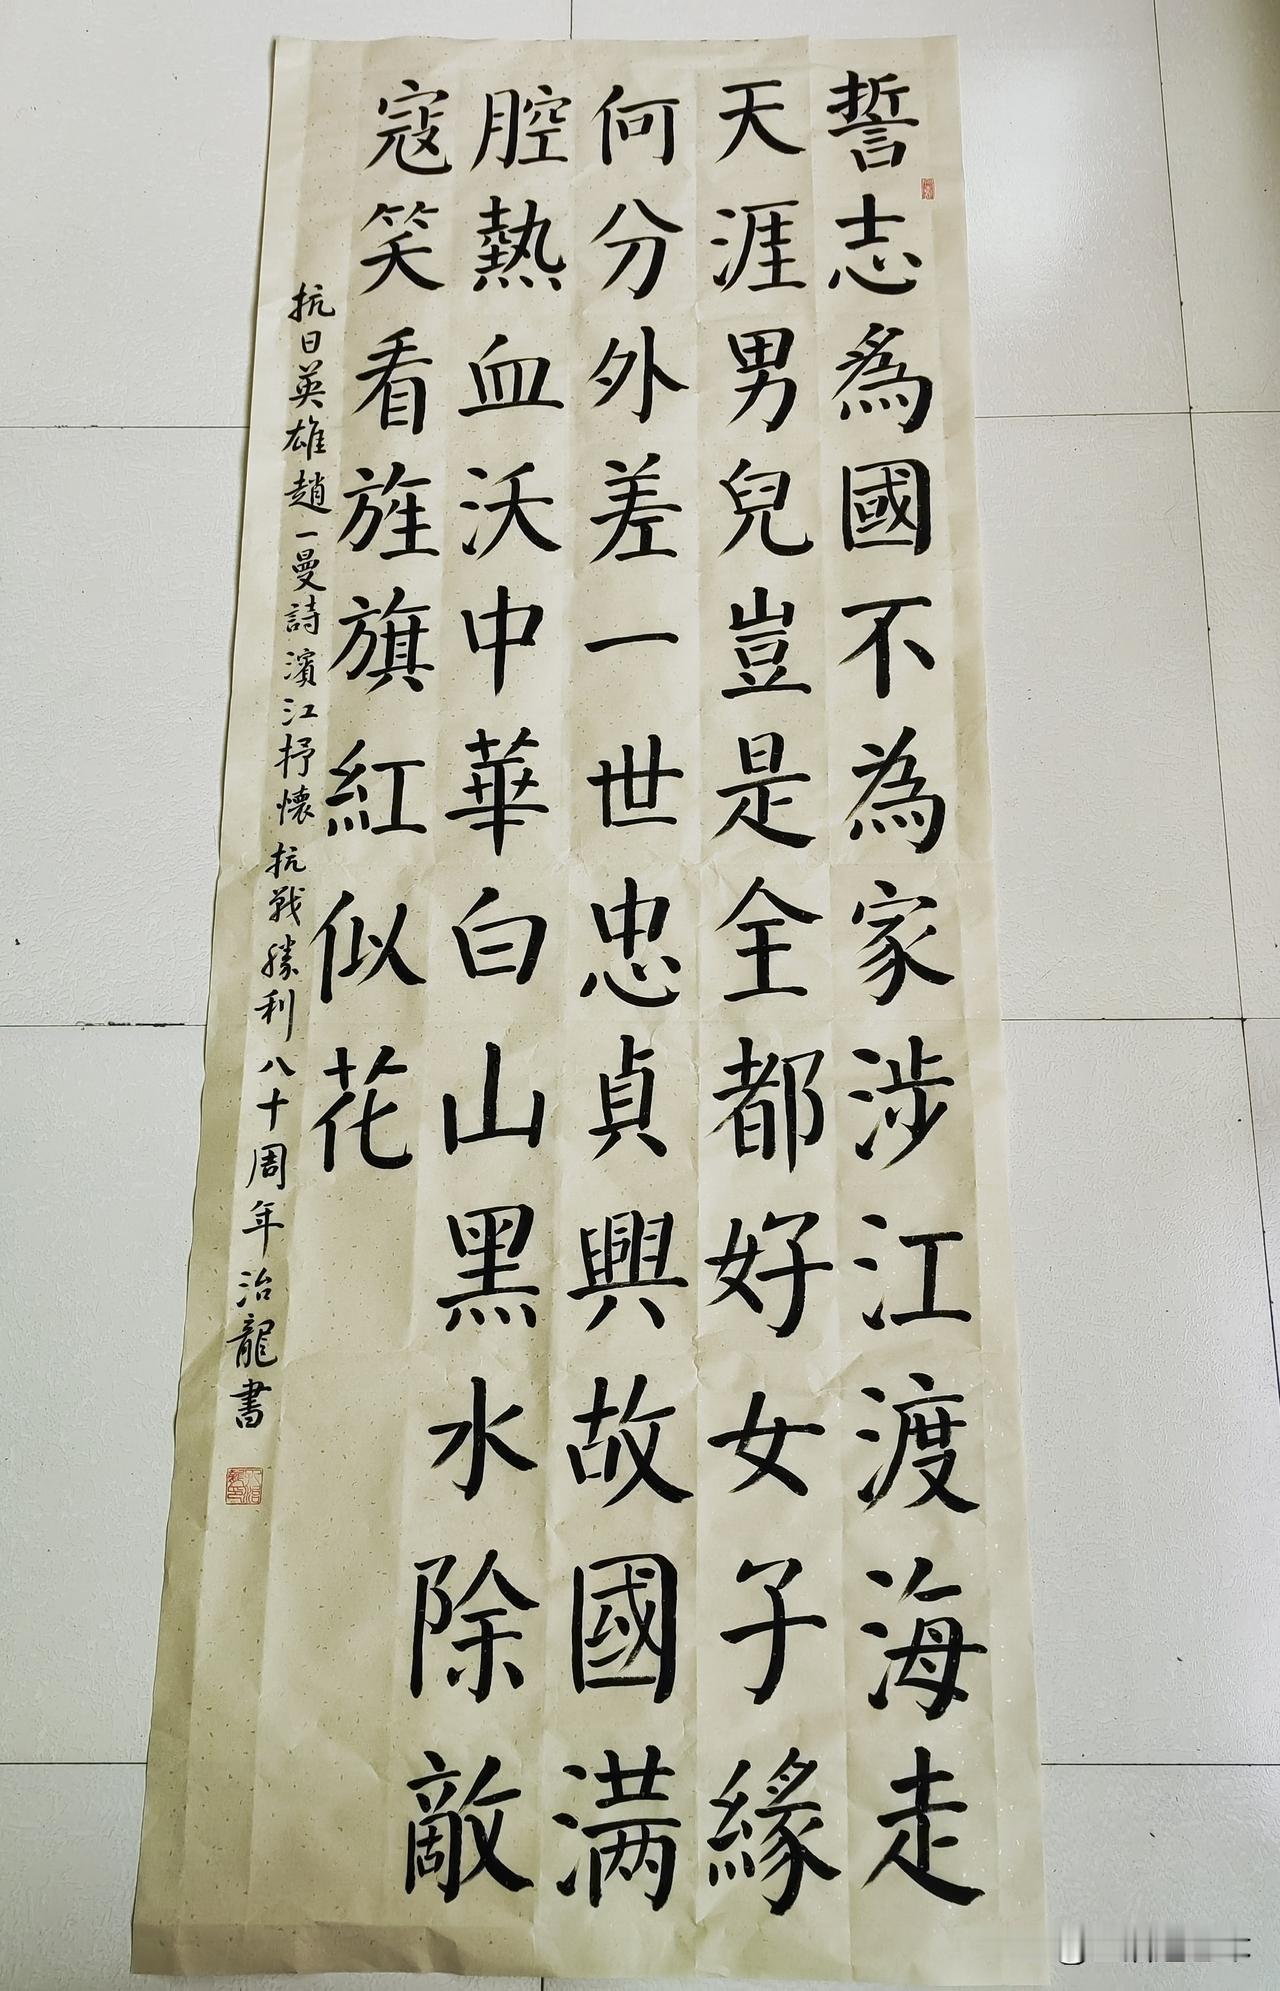 誓志爲國不為家涉江渡海走
天涯男兒豈是全都好女子緣
何分外差一世忠貞興故國满
腔熱血沃中華白山黑水除敵
寇笑看旌旗紅似花
抗日英雄趙一曼詩濱江抒懷抗戰勝利八十周年治龍書